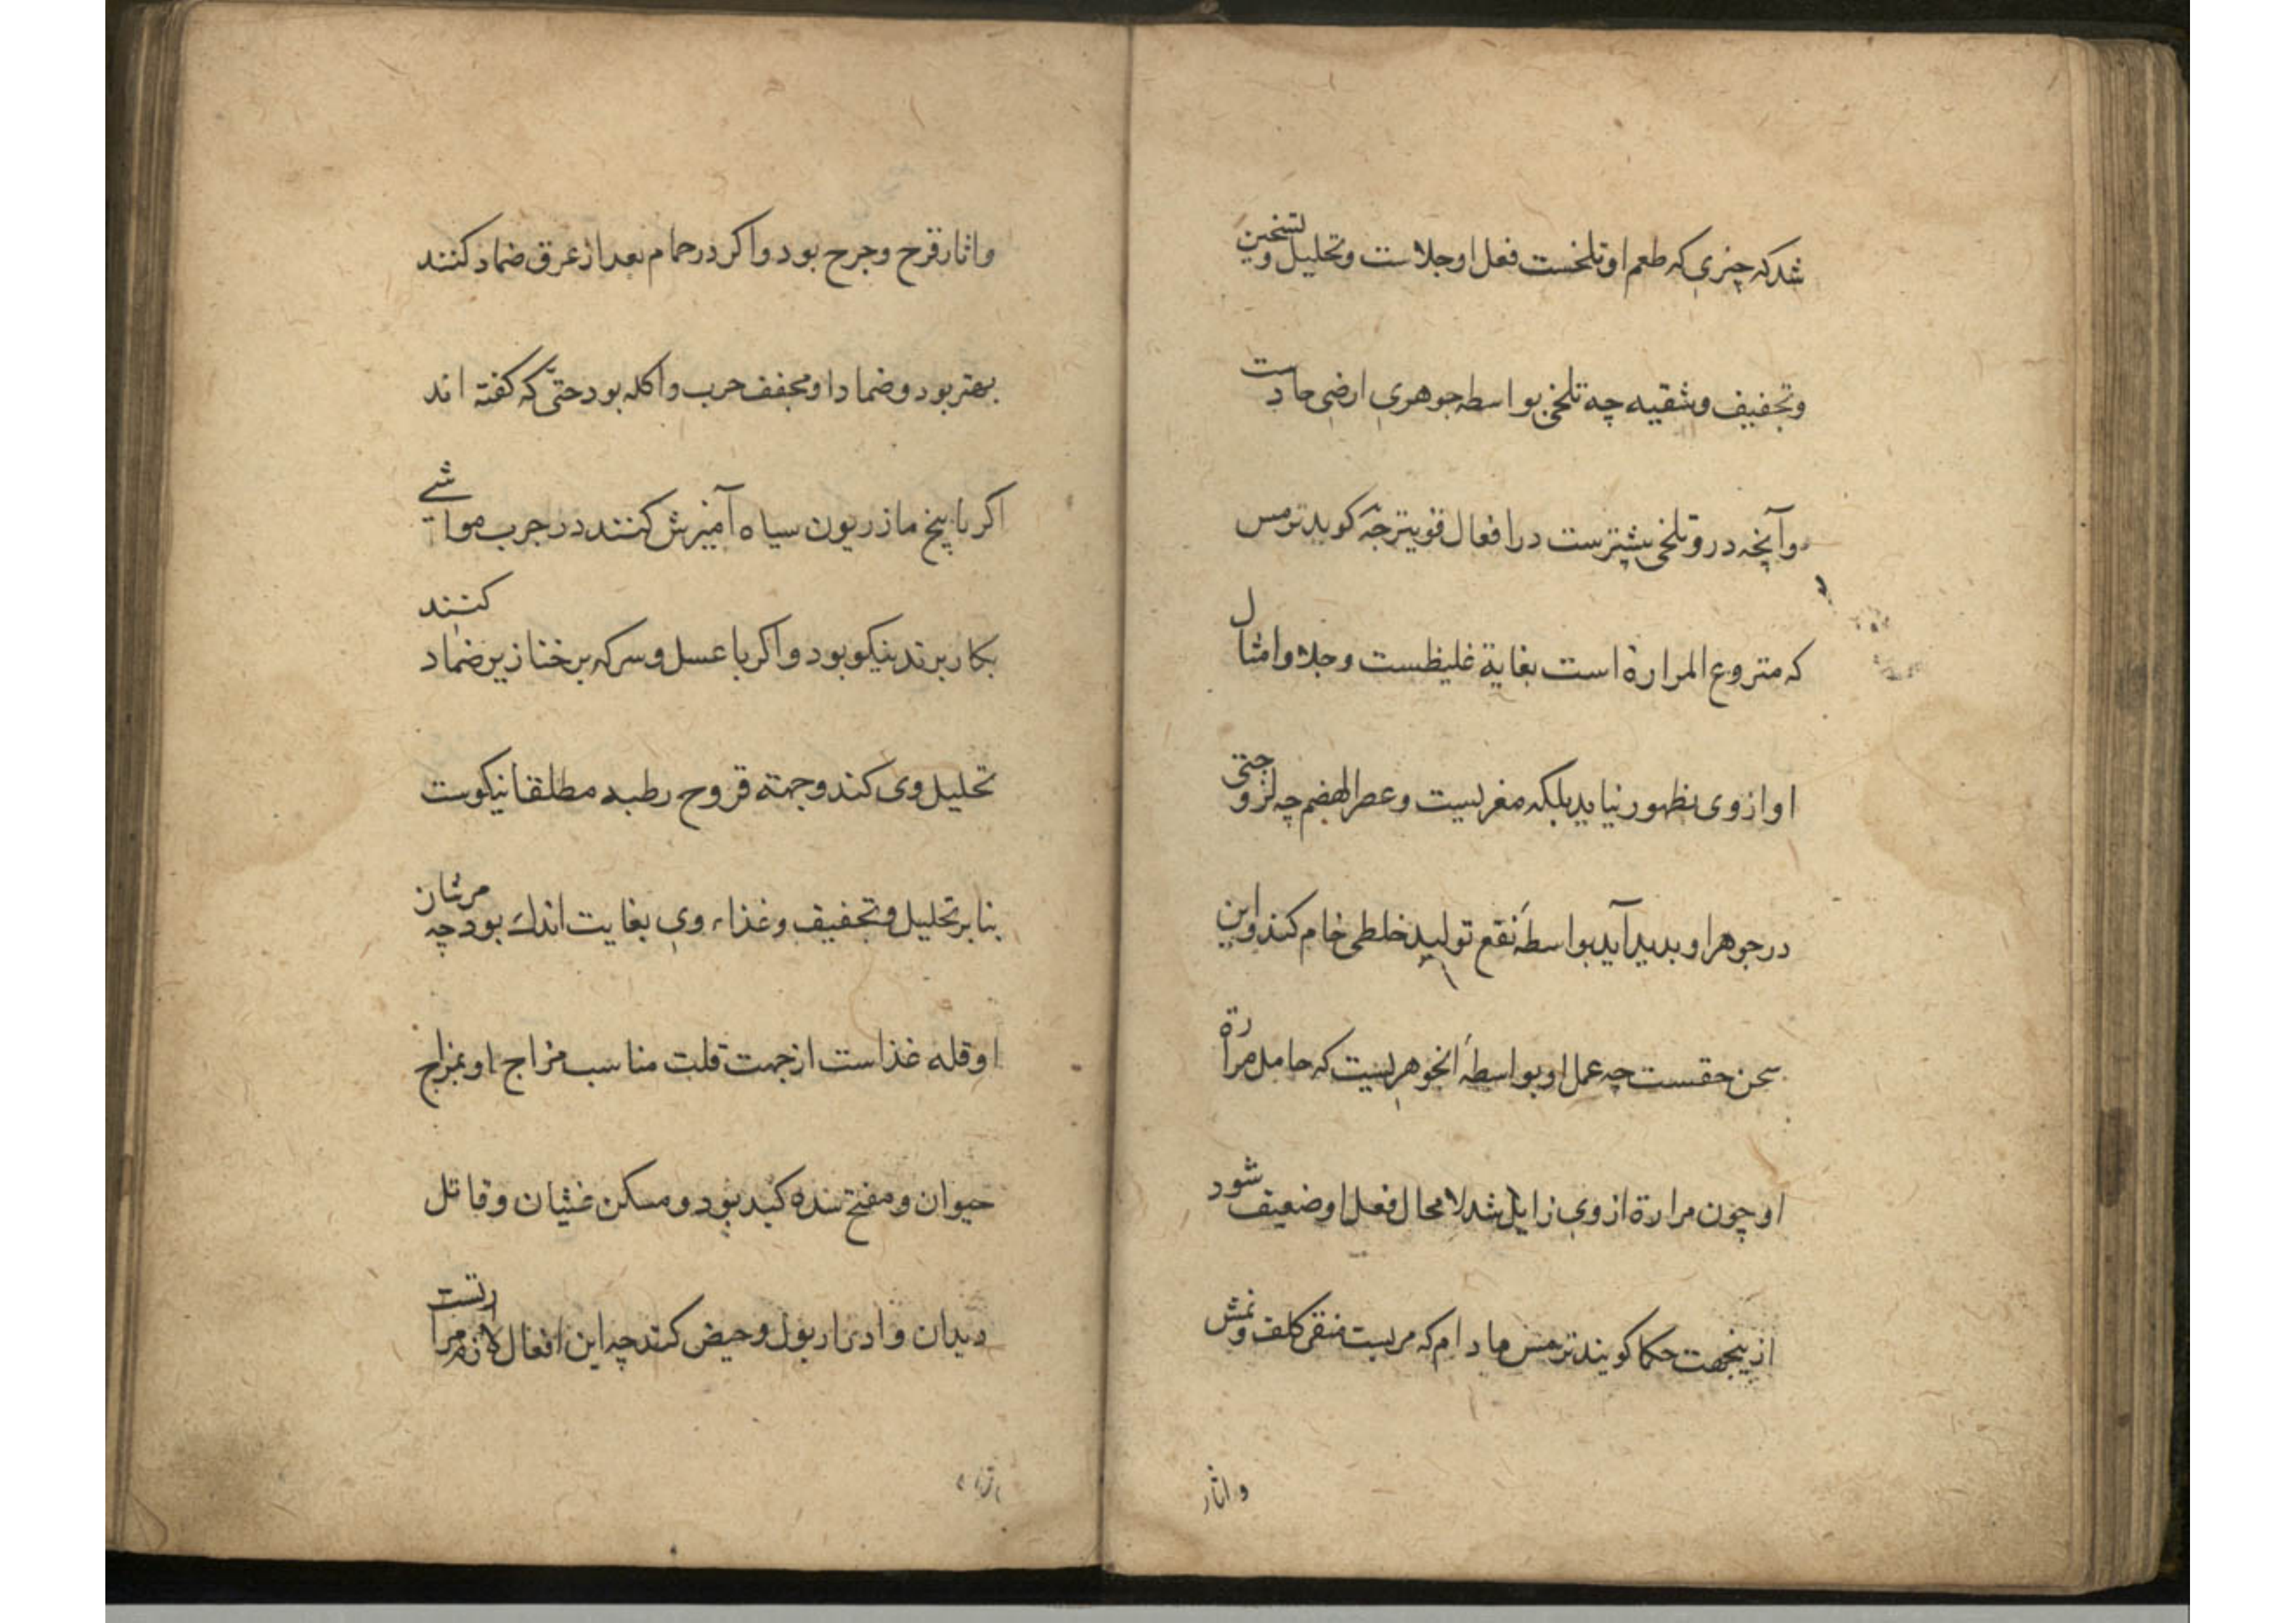 شدکه چیزی که طعم او تلخست فعل او جلاست وتحلیل وتسخین
وتجفیف وتنقیه چه تلخی بواسطه جوهری ارضی حادست
وآنچه درو تلخی بیشترست در افعال قویتر چه کوید ترمس
که منزوع المرارة است بغایة غلیظست وجلا وامثال
او از وی بظهور نیاید بلکه مغریست وعسر الهضم چه لزوجتی
در جوهر او بدید آید بواسطه نقع تولید خلطی خام کند واین
سخن حقست چه عمل او بواسطه آنجوهریست که حامل مرارة
او چون مرارة از وی زایل شد لا محال فعل او ضعیف شود
ازینجهت حکما کویند ترمس مادام که مریست منقی کلف ونمش
واثار
واثار قرح وجرح بود واکر در حمام بعد از عرق ضماد کنند
بهتر بود وضماد او مجفف جرب واکله بود حتی که کفته اند
اکر با بیخ مازریون سیاه آمیزش کنند در جرب مواشی
بکار برند نیکو بود واکر با عسل وسرکه بر خنازیر ضماد کنند
تحلیل وی کند وجهة قروح رطبه مطلقا نیکوست
بنابر تحلیل وتجفیف وغذاء وی بغایت اندک بود چه مرشان
او قله غذاست از جهت قلت مناسب مزاج او بمزاج
حیوان ومفتح سده کبد بود ومسکن غثیان وقاتل
دیدان وادرار بول وحیض کند چه این افعال لازم مرارتست